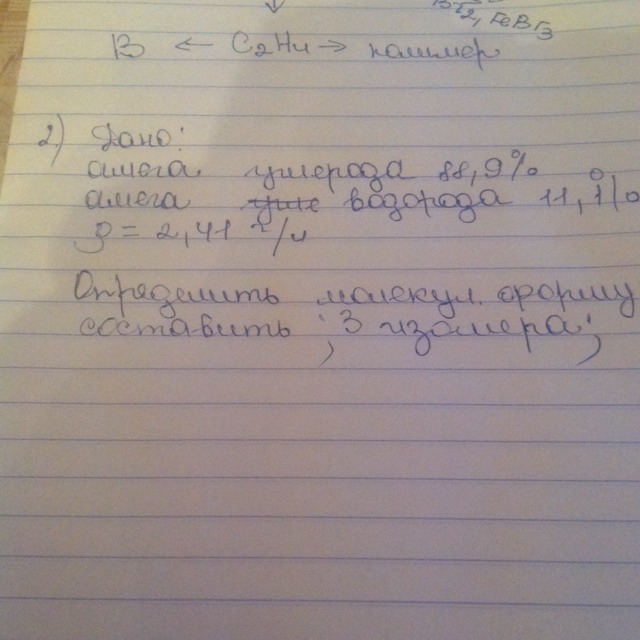 Br2, FeBr3
B ← C2H4 → полимер
2) Дано:
омега углерода 88,9%
омега угле водорода 11,1%
ρ = 2,41 г/л
Определить молекул. форму
составить 3 изомера;